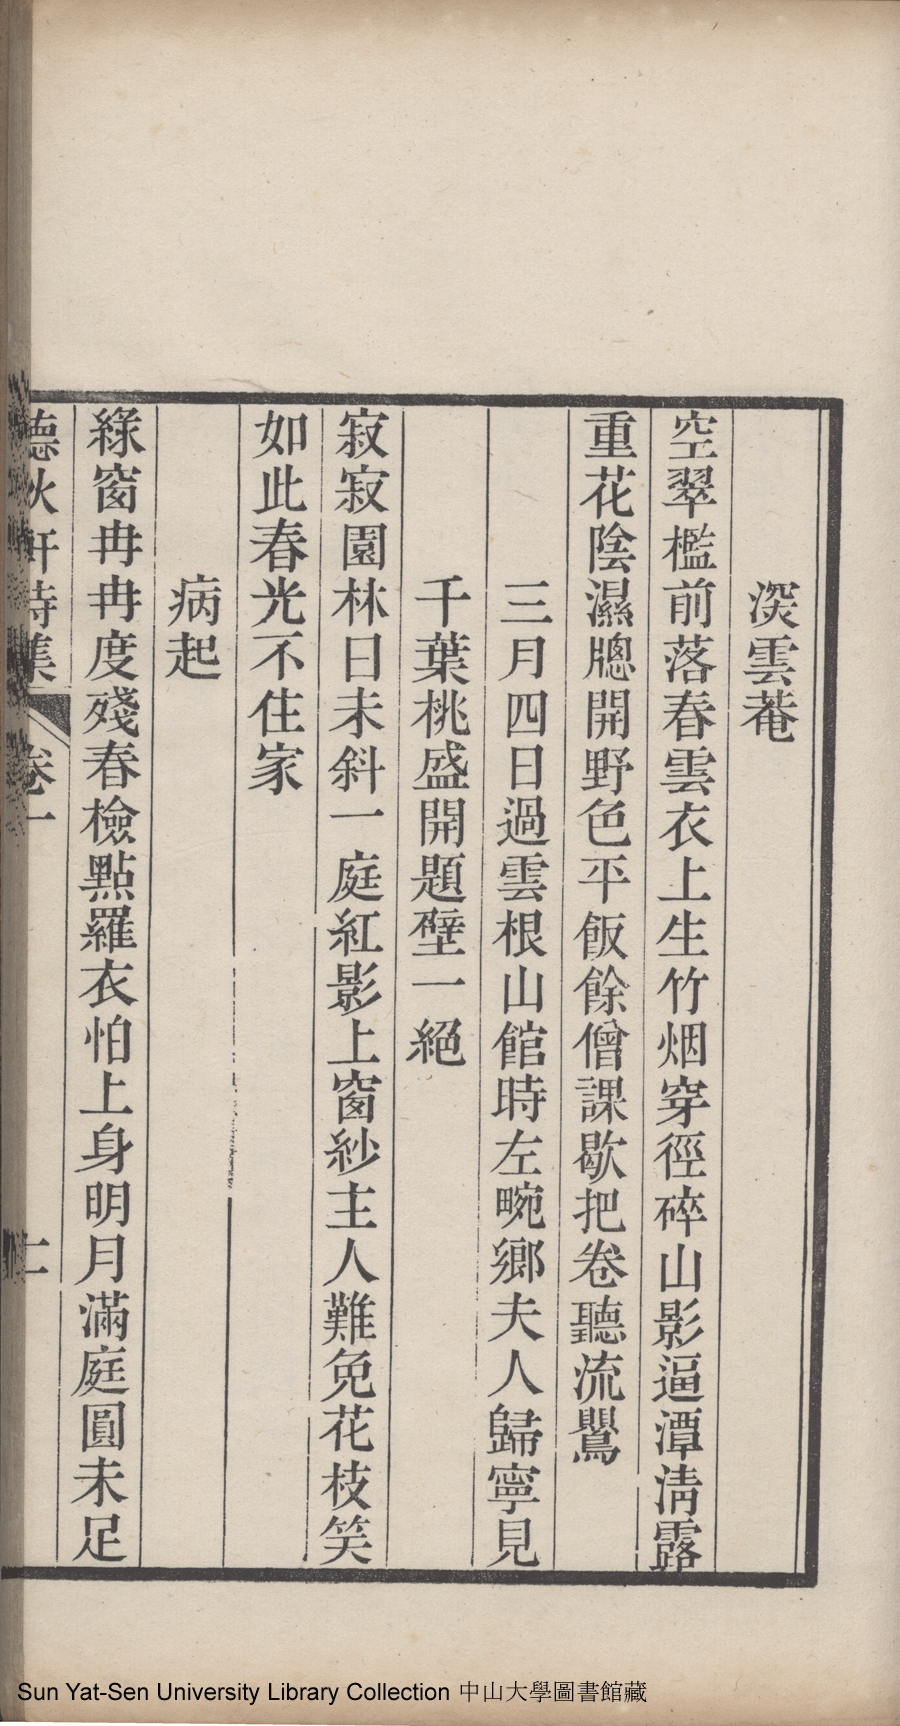 深雲菴
空翠檻前落春雲衣上生竹烟穿徑碎山影逼潭淸露
重花陰濕牕開野色平飯餘僧課歇把卷聽流鶯
三月四日過雲根山館時左畹鄉夫人歸寧見
千葉桃盛開題壁一絕
寂寂園林日未斜一庭紅影上窗紗主人難免花枝笑
如此春光不住家
病起
綠窗冉冉度殘春檢點羅衣怕上身明月滿庭圓未足
德火軒詩集 卷一 二
Sun Yat-Sen University Library Collection 中山大學圖書館藏